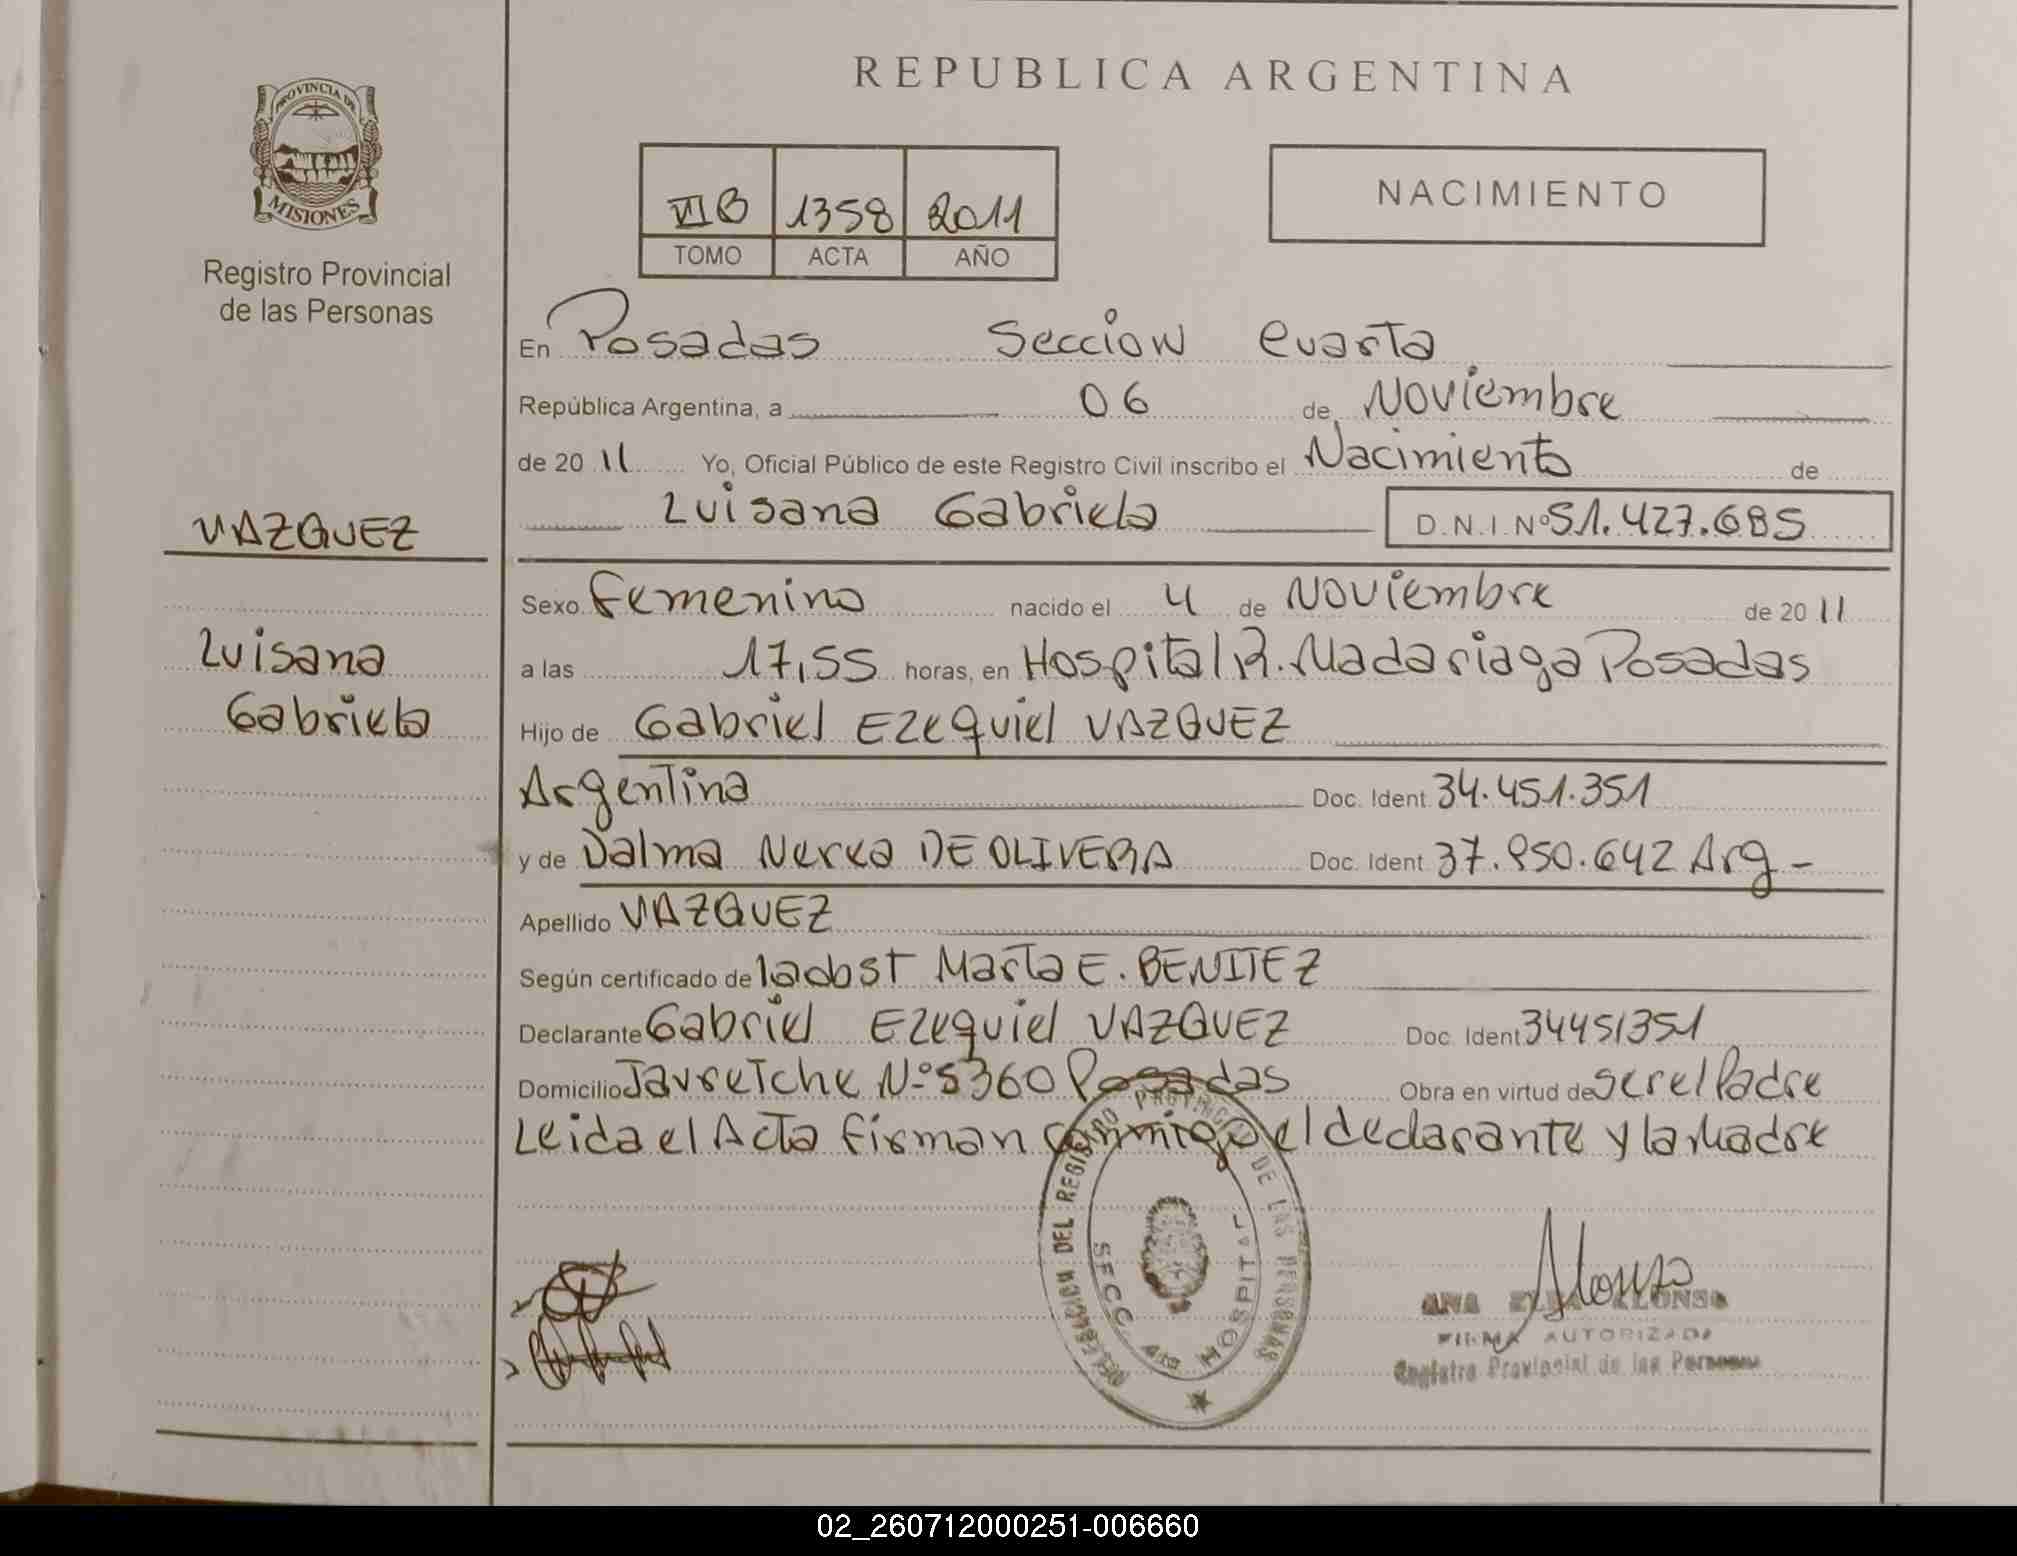 REPUBLICA ARGENTINA
PROVINCIA DE
MISIONES
Registro Provincial
de las Personas
VII B 1358 2011
TOMO ACTA AÑO
NACIMIENTO
En Posadas Seccion Cuarta
República Argentina, a 06 de Noviembre
de 20 11 Yo, Oficial Público de este Registro Civil inscribo el Nacimiento de
Luisana Gabriela D.N.I. Nº 51.427.685
VAZQUEZ
Luisana
Gabriela
Sexo Femenino nacido el 4 de Noviembre de 20 11
a las 17,55 horas, en Hospital R. Madariaga Posadas
Hijo de Gabriel Ezequiel VAZQUEZ
Argentina Doc. Ident 34.451.351
y de Dalma Nerea DE OLIVERA Doc. Ident 37.950.642 Arg -
Apellido VAZQUEZ
Según certificado de la obst Marta E. BENITEZ
Declarante Gabriel Ezequiel VAZQUEZ Doc. Ident 34451351
Domicilio Jauretche Nº 5360 Posadas Obra en virtud de ser el Padre
Leida el Acta firman conmigo el declarante y la Madre
DELEGACION DEL REGISTRO PROVINCIAL DE LAS PERSONAS
SECC 4ta HOSPITAL
Alonso
ANA ELBA ALONSO
FIRMA AUTORIZADA
Registro Provincial de las Personas
02_260712000251-006660